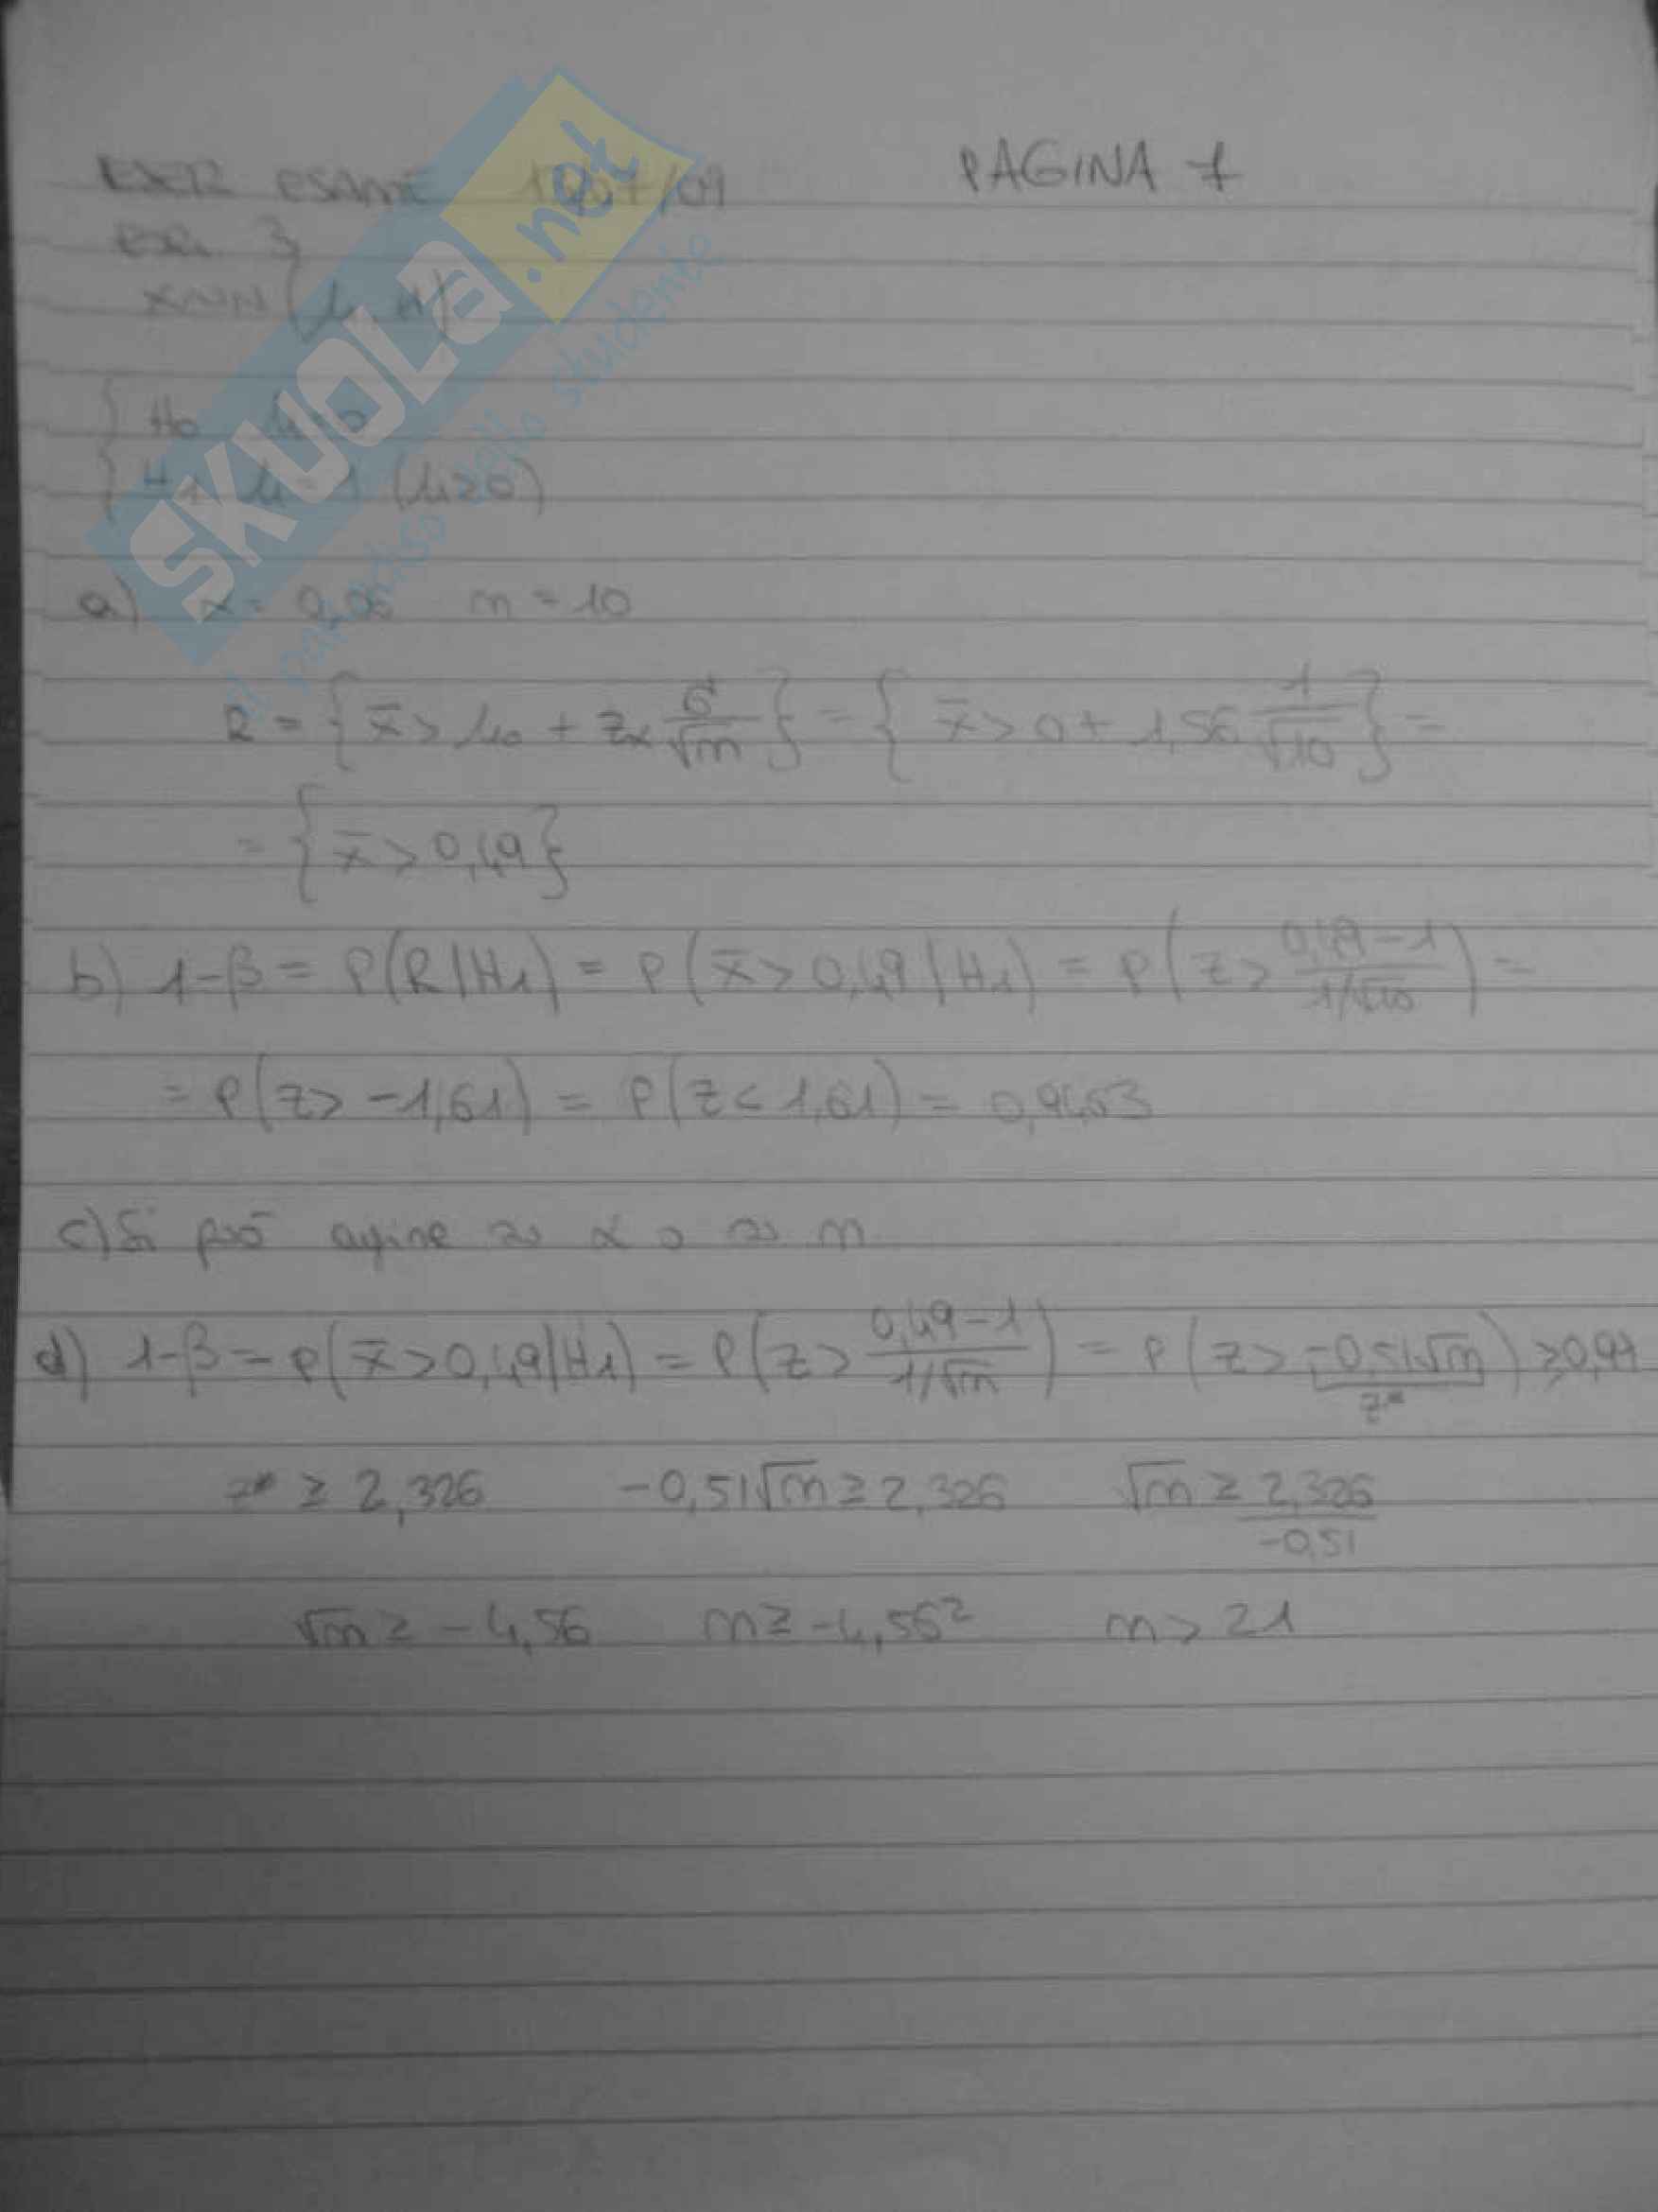 ESER ESAME 1 /07/09 PAGINA 7
ESER. 3
X~N(μ, 1)
{ H0 μ=0
{ H1 μ=1 (μ≥0)
a) α = 0,06 n = 10
R = { x̄ > μ0 + zα σ/√n } = { x̄ > 0 + 1,56 1/√10 } =
= { x̄ > 0,49 }
b) 1-β = P(R|H1) = P(x̄ > 0,49 | H1) = P(Z > (0,49-1)/(1/√10)) =
= P(Z > -1,61) = P(Z < 1,61) = 0,9463
c) Si può agire su α o su n
d) 1-β = P(x̄ > 0,49|H1) = P(Z > (0,49-1)/(1/√n)) = P(Z > -0,51√n) ≥ 0,99
z*
z* ≥ 2,326 -0,51√n ≥ 2,326 √n ≥ 2,326/-0,51
√n ≥ -4,56 n ≥ -4,56² n > 21
SKUOLA.net
il paradiso dello studente